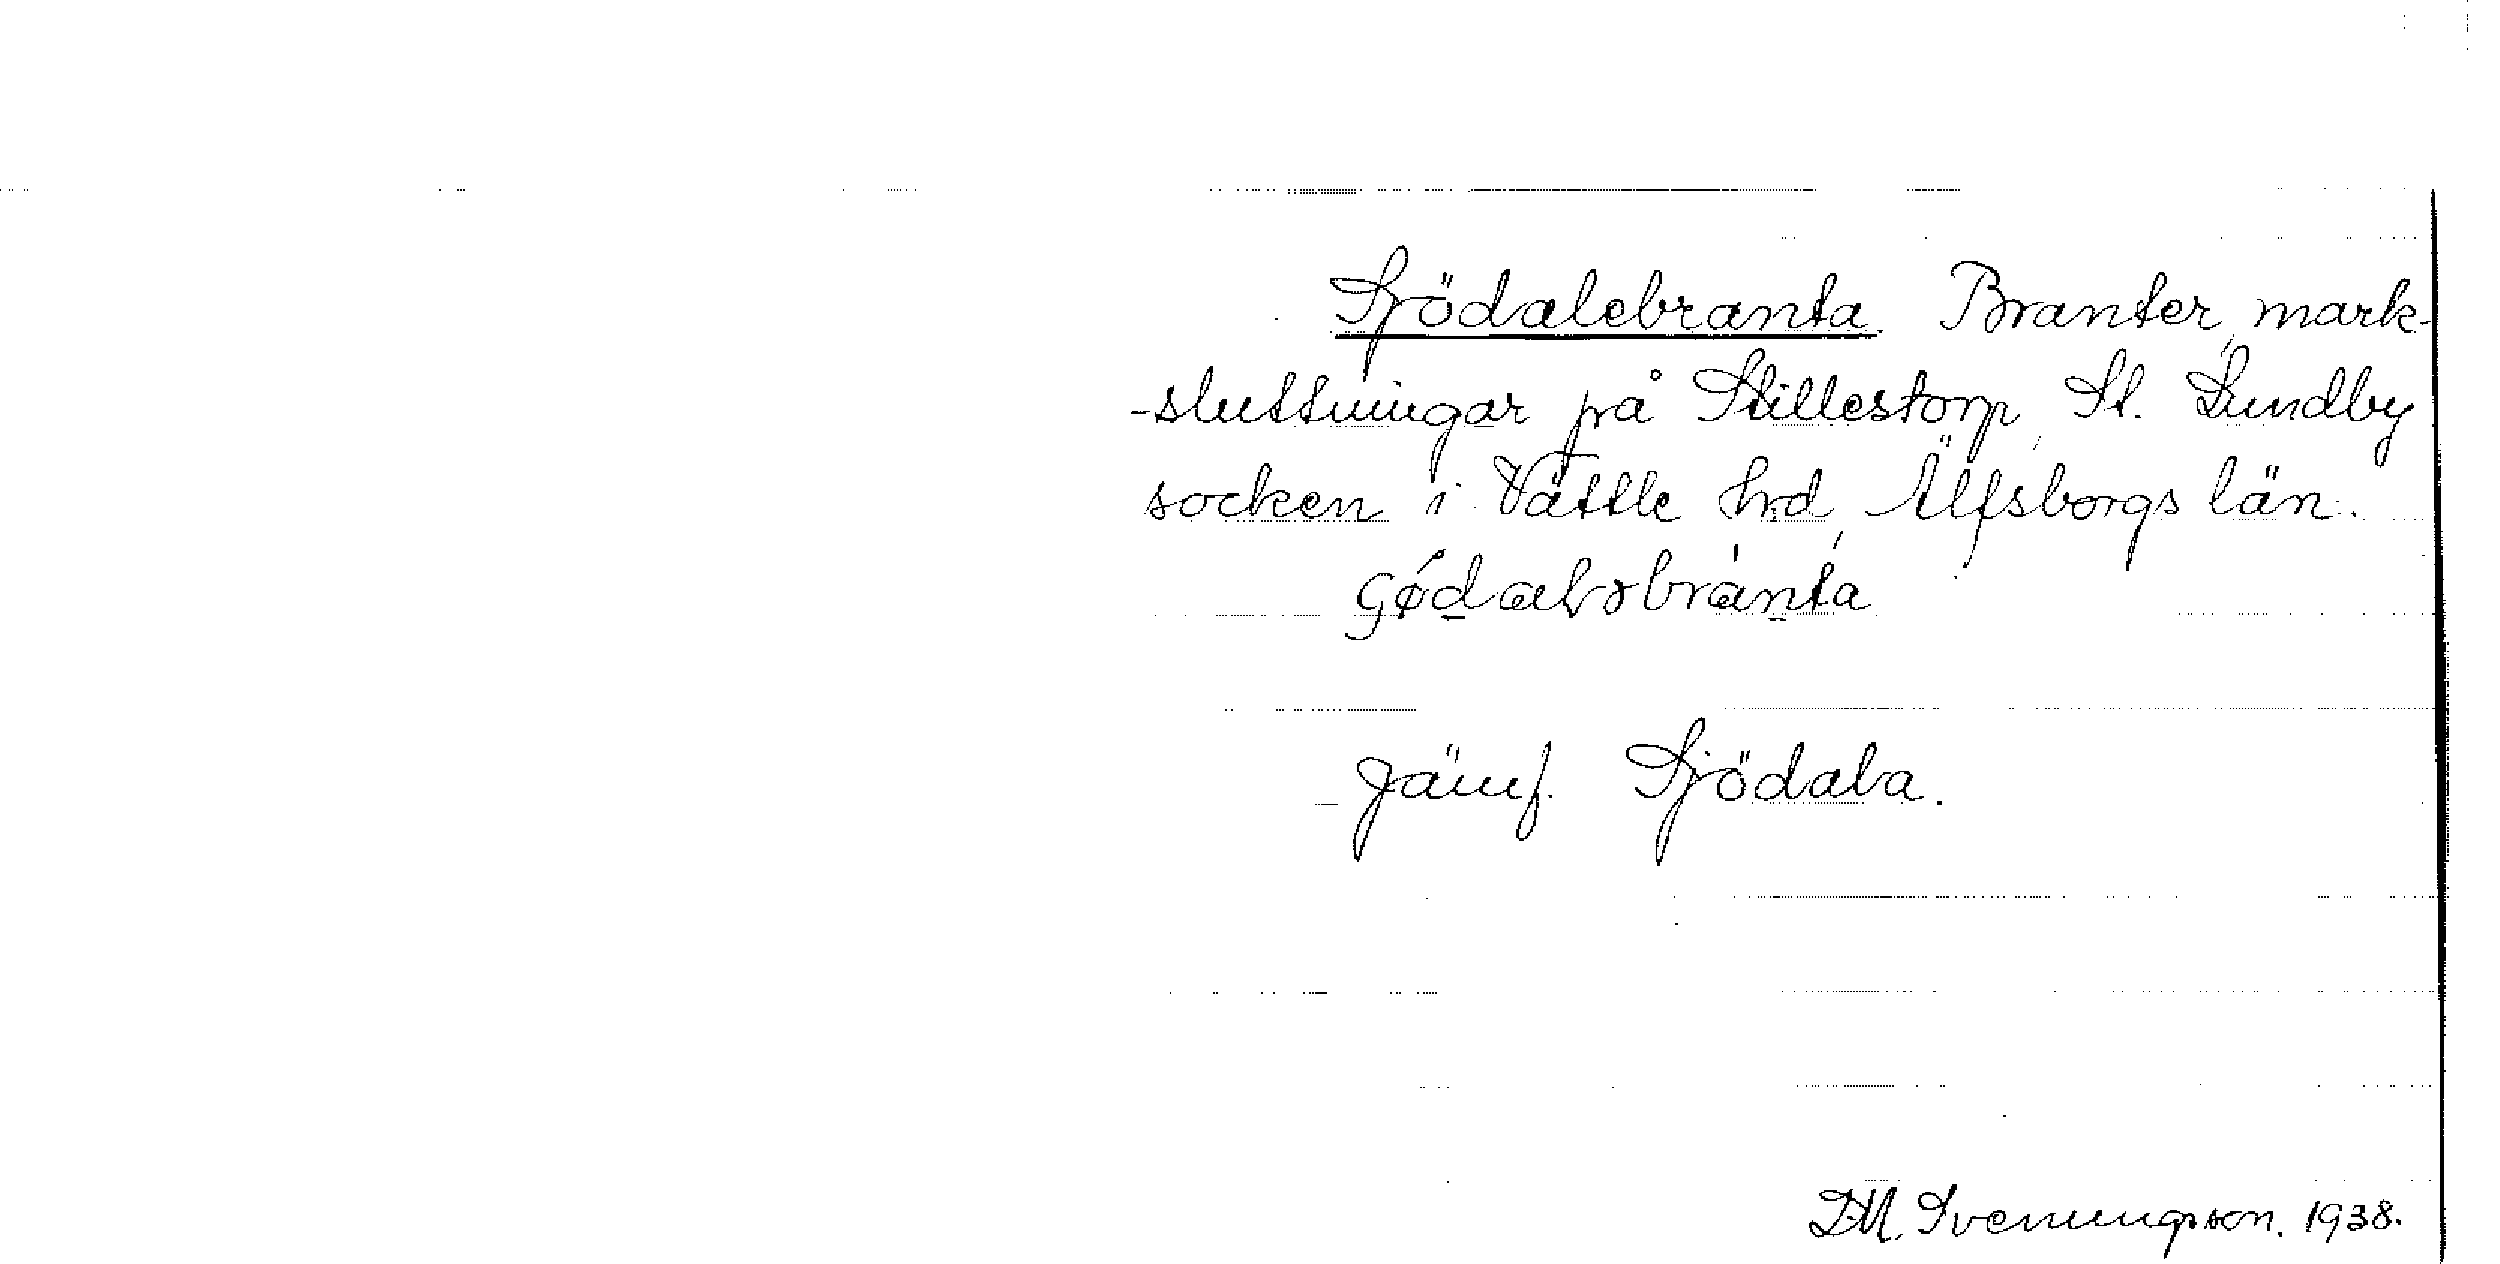 Sjödalebranta. Branter, mark-
-sluttningar på Stillestorp, St. Lundby
socken i Vättle hrd, Älfsborgs län.
Jämf. Sjödala.
D.M. Svenungsson. 1938.